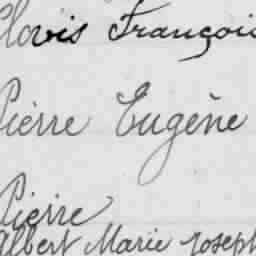 Clovis François
Pierre Eugène
Pierre
Albert Marie Joseph